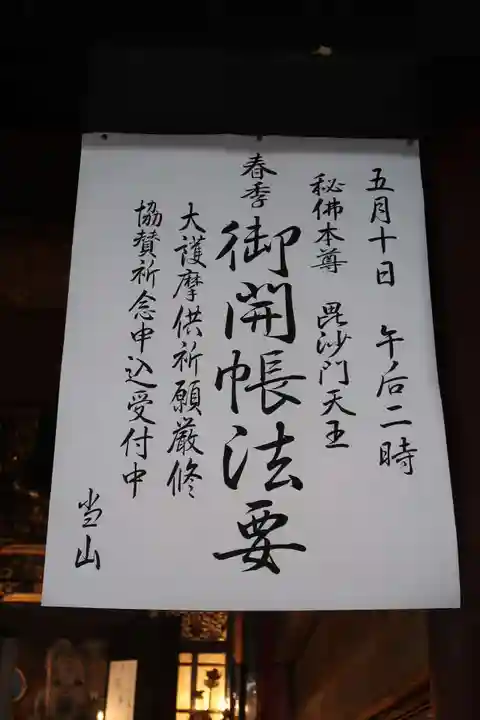 五月十日 午后二時
秘佛本尊 毘沙門天王
春季 御開帳法要
大護摩供祈願厳修
協賛祈念申込受付中
当山